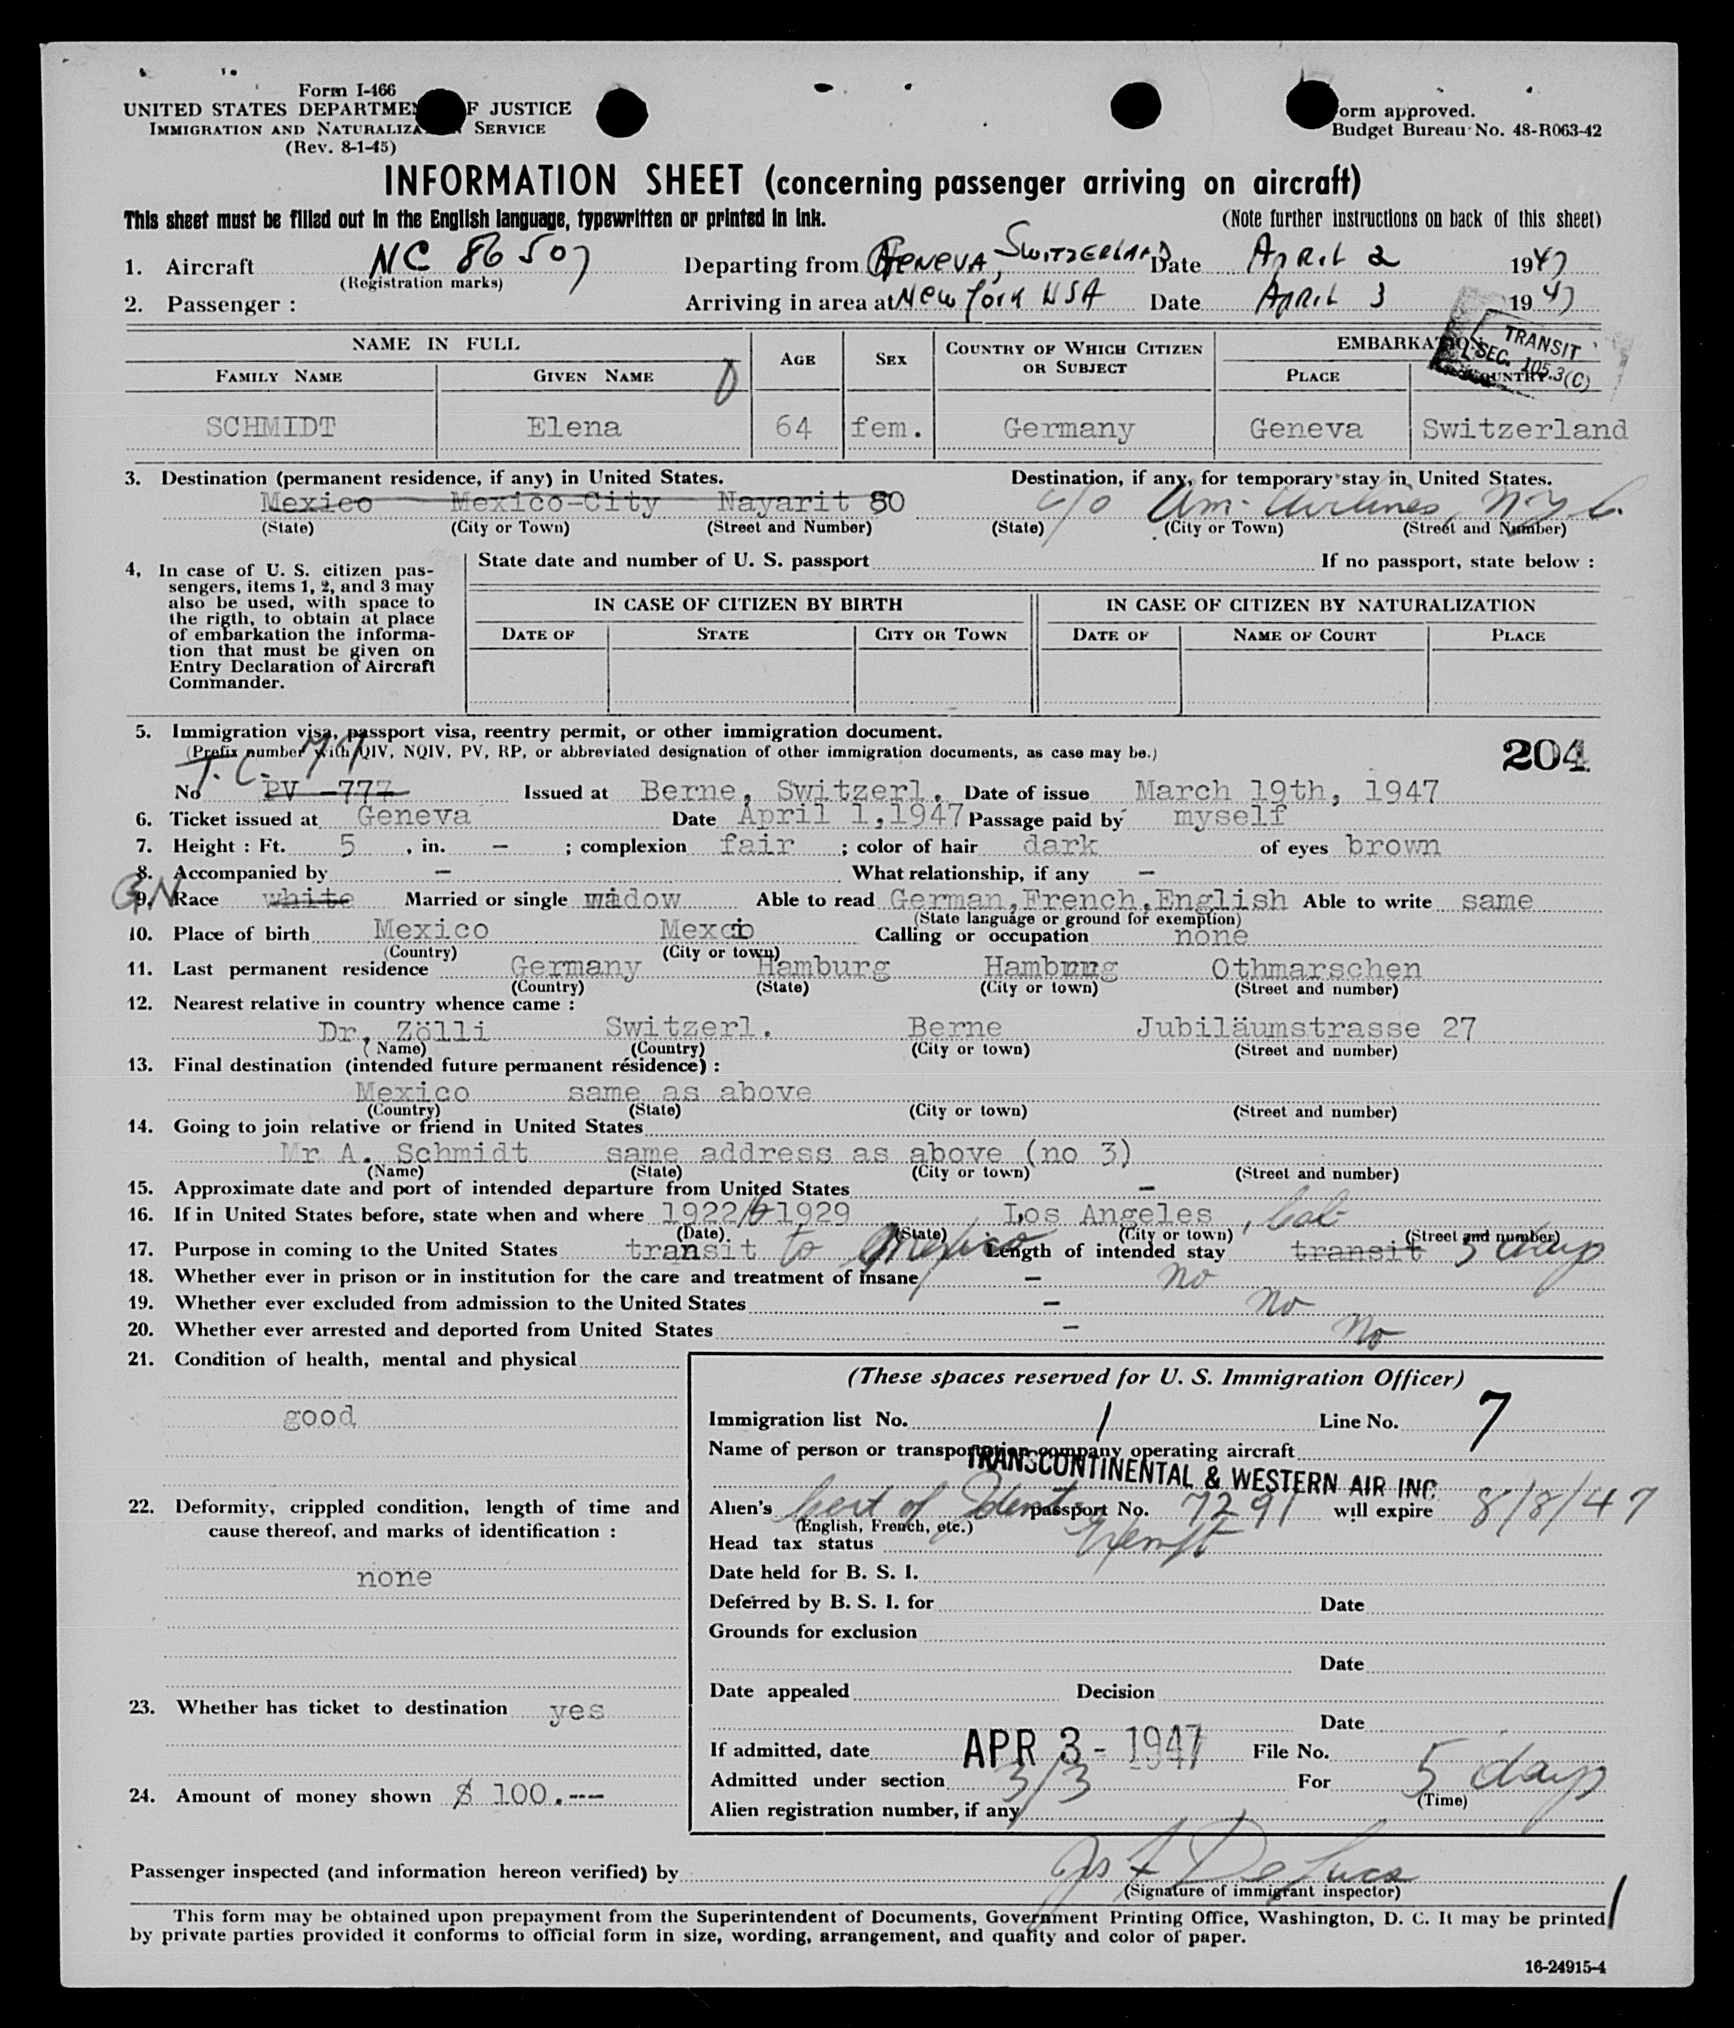 Form I-466
UNITED STATES DEPARTMENT OF JUSTICE
IMMIGRATION AND NATURALIZATION SERVICE
(Rev. 8-1-45)
Form approved.
Budget Bureau No. 48-R063-42
INFORMATION SHEET (concerning passenger arriving on aircraft)
This sheet must be filled out in the English language, typewritten or printed in ink. (Note further instructions on back of this sheet)
1. Aircraft NC 86507 Departing from GENEVA, SWITZERLAND Date APRIL 2 1947
(Registration marks)
2. Passenger : Arriving in area at New York USA Date APRIL 3 1947
TRANSIT
SEC. 105.3(C)
NAME IN FULL AGE SEX COUNTRY OF WHICH CITIZEN OR SUBJECT EMBARKATION
FAMILY NAME GIVEN NAME PLACE COUNTRY
SCHMIDT Elena 64 fem. Germany Geneva Switzerland
3. Destination (permanent residence, if any) in United States. Destination, if any, for temporary stay in United States.
Mexico Mexico-City Nayarit 80 c/o Am. Airlines, N.Y.C.
(State) (City or Town) (Street and Number) (State) (City or Town) (Street and Number)
4, In case of U. S. citizen pas-
sengers, items 1, 2, and 3 may
also be used, with space to
the rigth, to obtain at place
of embarkation the informa-
tion that must be given on
Entry Declaration of Aircraft
Commander.
State date and number of U. S. passport If no passport, state below :
IN CASE OF CITIZEN BY BIRTH IN CASE OF CITIZEN BY NATURALIZATION
DATE OF STATE CITY OR TOWN DATE OF NAME OF COURT PLACE
5. Immigration visa, passport visa, reentry permit, or other immigration document.
(Prefix number with QIV, NQIV, PV, RP, or abbreviated designation of other immigration documents, as case may be.)
204
T.C. 77
No PV -777 Issued at Berne, Switzerl. Date of issue March 19th, 1947
6. Ticket issued at Geneva Date April 1,1947 Passage paid by myself
7. Height : Ft. 5 , in. – ; complexion fair ; color of hair dark of eyes brown
8. Accompanied by – What relationship, if any –
GN
9. Race white Married or single widow Able to read German,French,English Able to write same
(State language or ground for exemption)
10. Place of birth Mexico Mexco Calling or occupation none
(Country) (City or town)
11. Last permanent residence Germany Hamburg Hamburg Othmarschen
(Country) (State) (City or town) (Street and number)
12. Nearest relative in country whence came :
Dr. Zölli Switzerl. Berne Jubiläumstrasse 27
(Name) (Country) (City or town) (Street and number)
13. Final destination (intended future permanent résidence) :
Mexico same as above
(Country) (State) (City or town) (Street and number)
14. Going to join relative or friend in United States
Mr A. Schmidt same address as above (no 3)
(Name) (State) (City or town) (Street and number)
15. Approximate date and port of intended departure from United States –
16. If in United States before, state when and where 1922/6-1929 Los Angeles , Cal
(Date) (State) (City or town) (Street and number)
17. Purpose in coming to the United States transit to Mexico Length of intended stay transit 5 days
18. Whether ever in prison or in institution for the care and treatment of insane – no
19. Whether ever excluded from admission to the United States – no
20. Whether ever arrested and deported from United States – No
21. Condition of health, mental and physical
good
22. Deformity, crippled condition, length of time and
cause thereof, and marks of identification :
none
23. Whether has ticket to destination yes
24. Amount of money shown $ 100.---
(These spaces reserved for U. S. Immigration Officer)
Immigration list No. 1 Line No. 7
Name of person or transportation company operating aircraft
TRANSCONTINENTAL & WESTERN AIR INC
Alien's Cert of Identity passport No. 7291 will expire 8/8/47
(English, French, etc.)
Head tax status Exempt
Date held for B. S. I.
Deferred by B. S. I. for Date
Grounds for exclusion
Date
Date appealed Decision
Date
If admitted, date APR 3 - 1947 File No.
Admitted under section 3/3 For 5 days
(Time)
Alien registration number, if any
Passenger inspected (and information hereon verified) by Jos F DeLuca
(Signature of immigrant inspector)
This form may be obtained upon prepayment from the Superintendent of Documents, Government Printing Office, Washington, D. C. It may be printed
by private parties provided it conforms to official form in size, wording, arrangement, and quality and color of paper.
16-24915-4